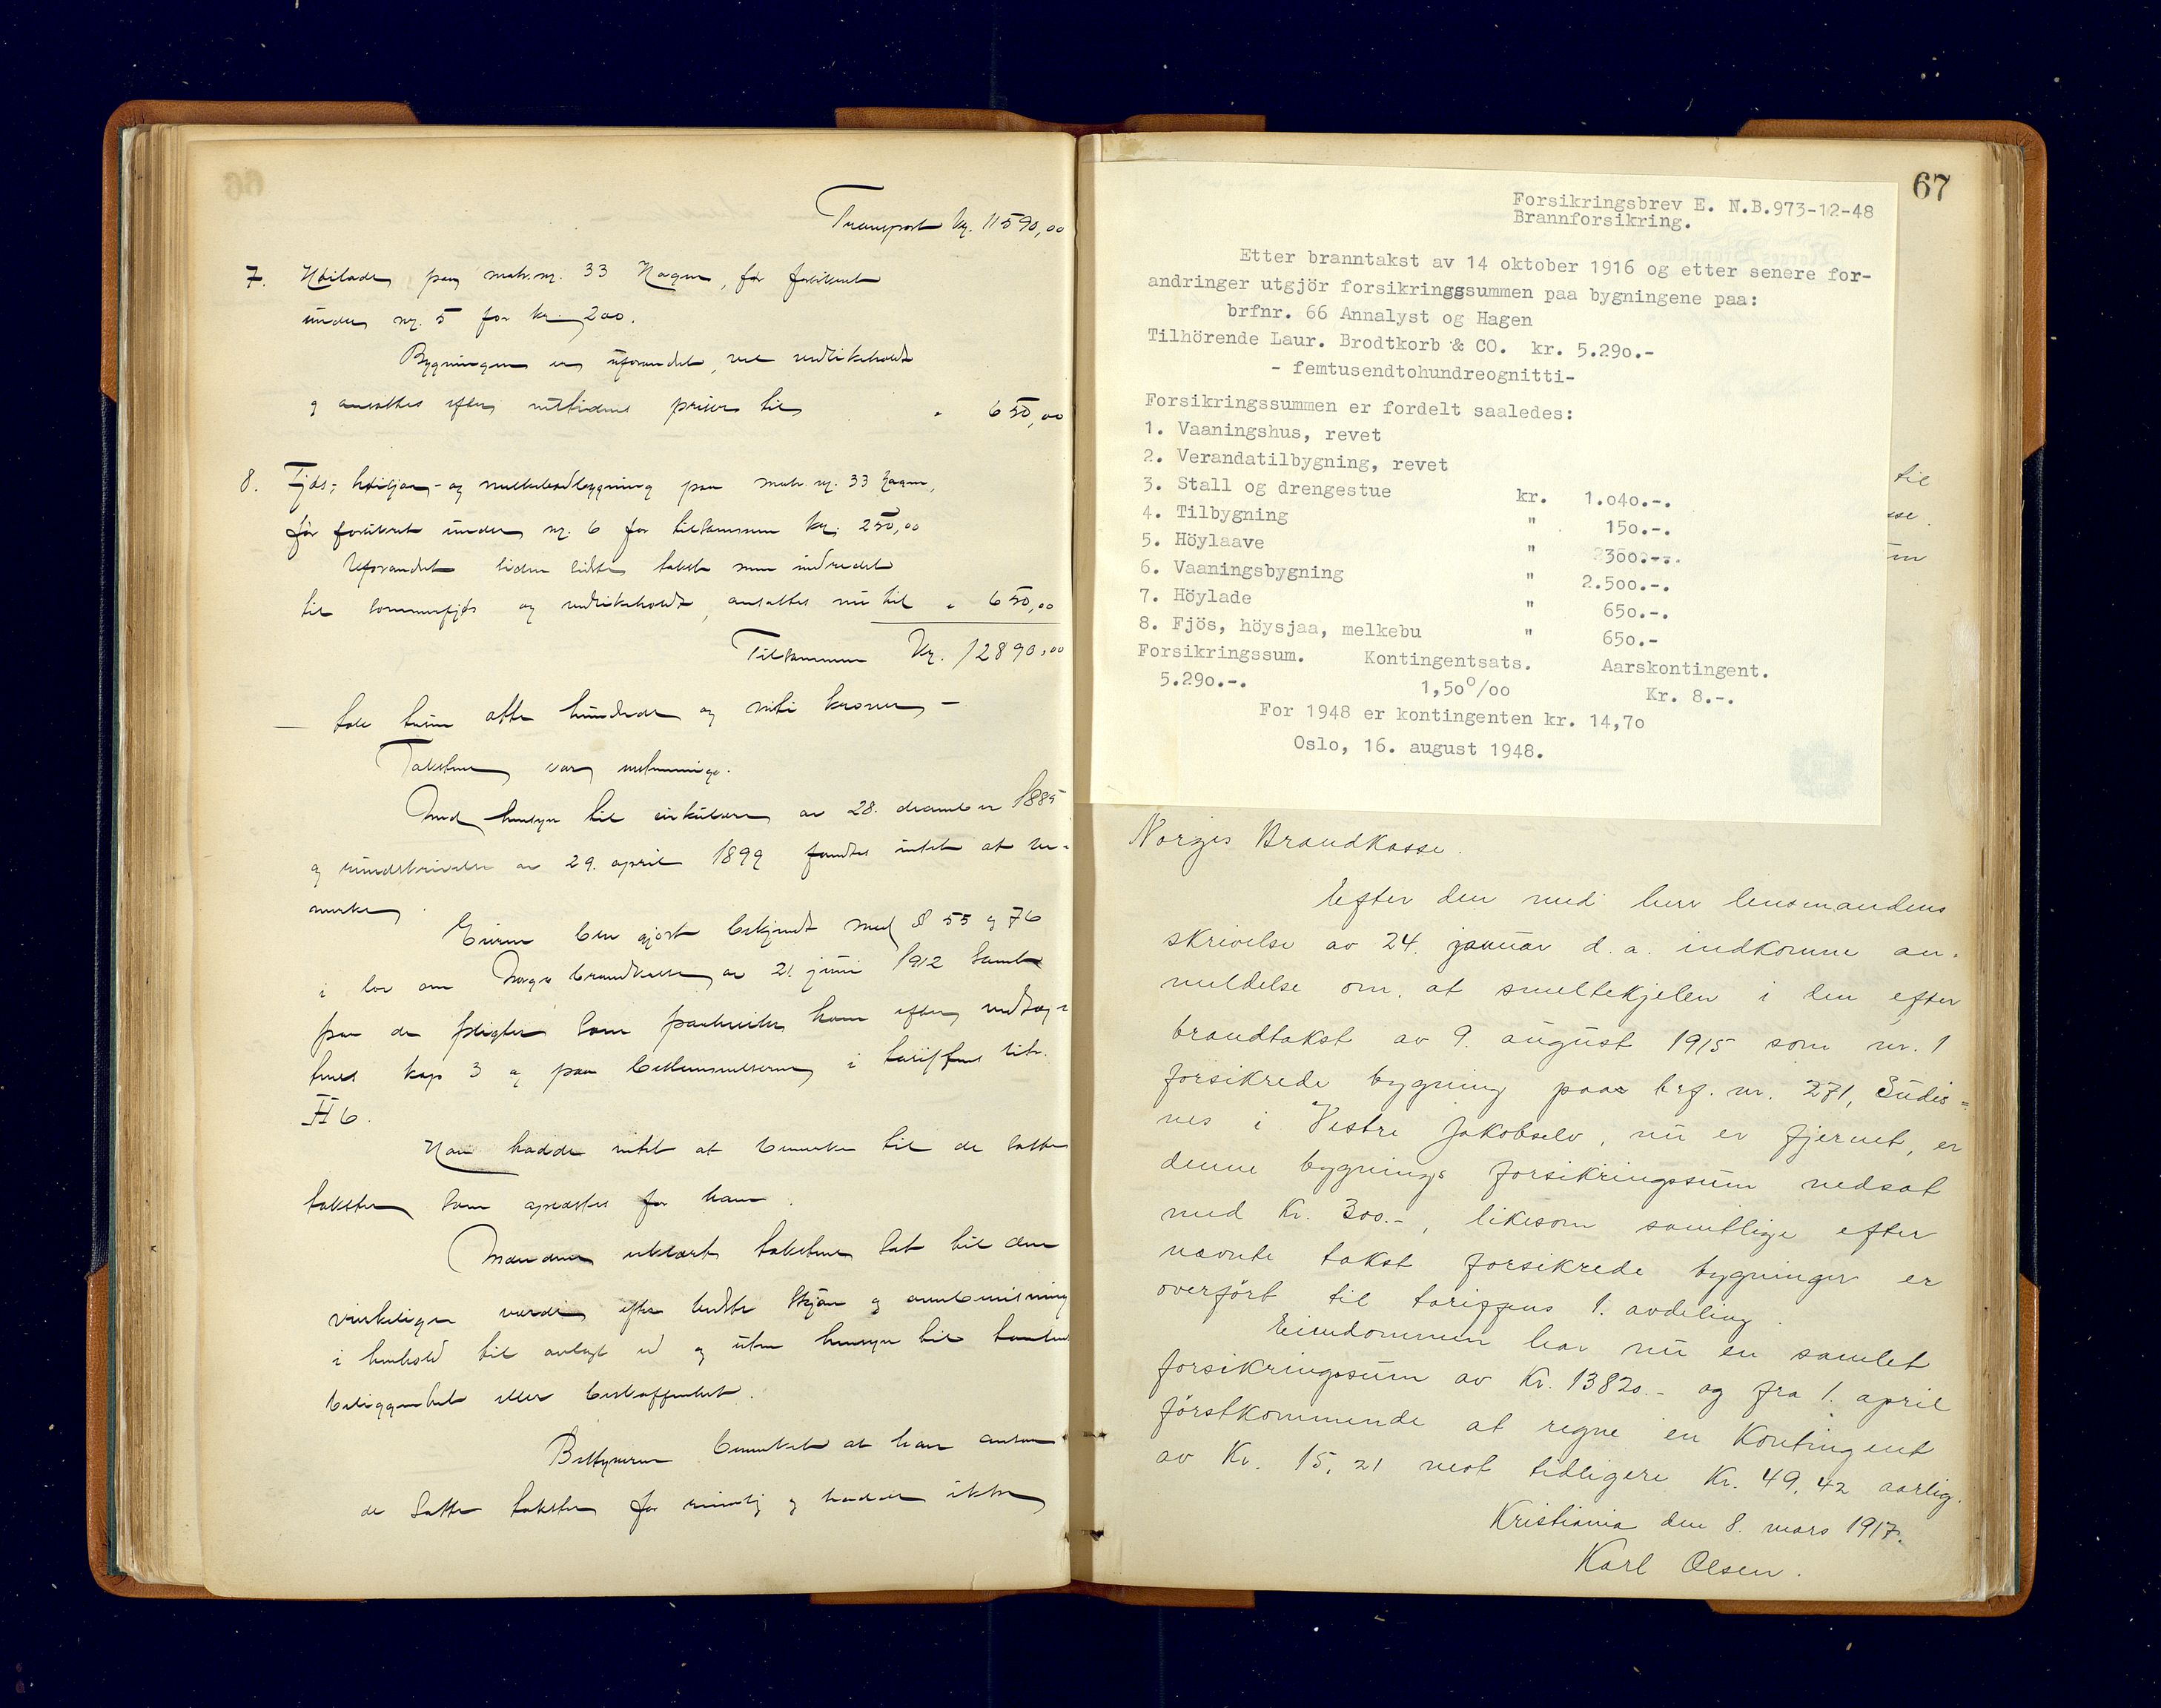 Transport Kr. 11590,00
7. Høilade paa matr.nr. 33 Hagen, før forsikret
under nr. 5 for kr. 200.
Bygningen er uforandret, vel vedlikeholdt
og ansattes efter nutidens priser til " 650,00
8. Fjøs-, høisjaa- og melkebodbygning paa matr. nr. 33 Hagen,
før forsikret under nr. 6 for tilsammen kr. 250,00
Uforandret siden sidste takst men indredet
til sommerfjøs og vedlikeholdt, ansattes nu til " 650,00
Tilsammen Kr. 12890,00
— tolv tusen otte hundrede og nitti kroner —
Taksten var enstemmig.
Med hensyn til cirkulære av 28. december 1885
og rundskrivelse av 29. april 1899 fandtes intet at be-
merke.
Eieren blev gjort bekjendt med § 55 og 76
i lov om Norges brandkasse av 21. juni 1912 samt
paa de pligter som paahviler ham efter vedtæg-
tenes kap 3 og paa bestemmelserne i tariffens litr.
H 6.
Han hadde intet at bemerke til de satte
takster som oplæstes for ham.
Mændene erklærte taksterne sat til den
virkelige værdi efter bedste skjøn og overbevisning
i henhold til avlagt ed og uten hensyn til tomtens
beliggenhet eller beskaffenhet.
Bestyreren bemerket at han anser
de satte takster for rimelig og hadde ikke
67
Forsikringsbrev E. N.B.973-12-48
Brannforsikring.
Etter branntakst av 14 oktober 1916 og etter senere for-
andringer utgjör forsikringssummen paa bygningene paa:
brfnr. 66 Annalyst og Hagen
Tilhörende Laur. Brodtkorb & CO. kr. 5.290.-
- femtusendtohundreognitti-
Forsikringssummen er fordelt saaledes:
1. Vaaningshus, revet
2. Verandatilbygning, revet
3. Stall og drengestue kr. 1.040.-.
4. Tilbygning " 150.-.
5. Höylaave " 300.-.
6. Vaaningsbygning " 2.500.-.
7. Höylade " 650.-.
8. Fjös, höysjaa, melkebu " 650.-
Forsikringssum. Kontingentsats. Aarskontingent.
5.290.-. 1,50⁰/00 Kr. 8.-.
For 1948 er kontingenten kr. 14,70
Oslo, 16. august 1948.
til
Norges Brandkasse.
Efter den med herr lensmandens
skrivelse av 24. januar d. a. indkomne an-
meldelse om, at smeltekjelen i den efter
brandtakst av 9. august 1915 som nr. 1
forsikrede bygning paa brf. nr. 271, Sudis=
nes i Vestre Jakobselv, nu er fjernet, er
denne bygnings forsikringssum nedsat
med Kr. 300.-, likesom samtlige efter
nævnte takst forsikrede bygninger er
overført til tariffens 1. avdeling.
Eiendommen har nu en samlet
forsikringssum av Kr. 13820.- og fra 1. april
førstkommende at regne en Kontingent
av Kr. 15,21 mot tidligere Kr. 49,42 aarlig.
Kristiania den 8. mars 1917.
Karl Olsen.